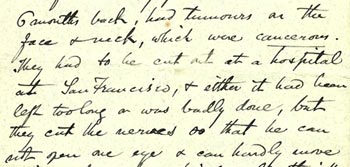 6 months back, had tumours on the
face & neck, which were cancerous.
They had to be cut out at a hospital
at San Francisco, & either it had been
left too long or was badly done, but
they cut the nerves so that he can
not open one eye & can hardly move